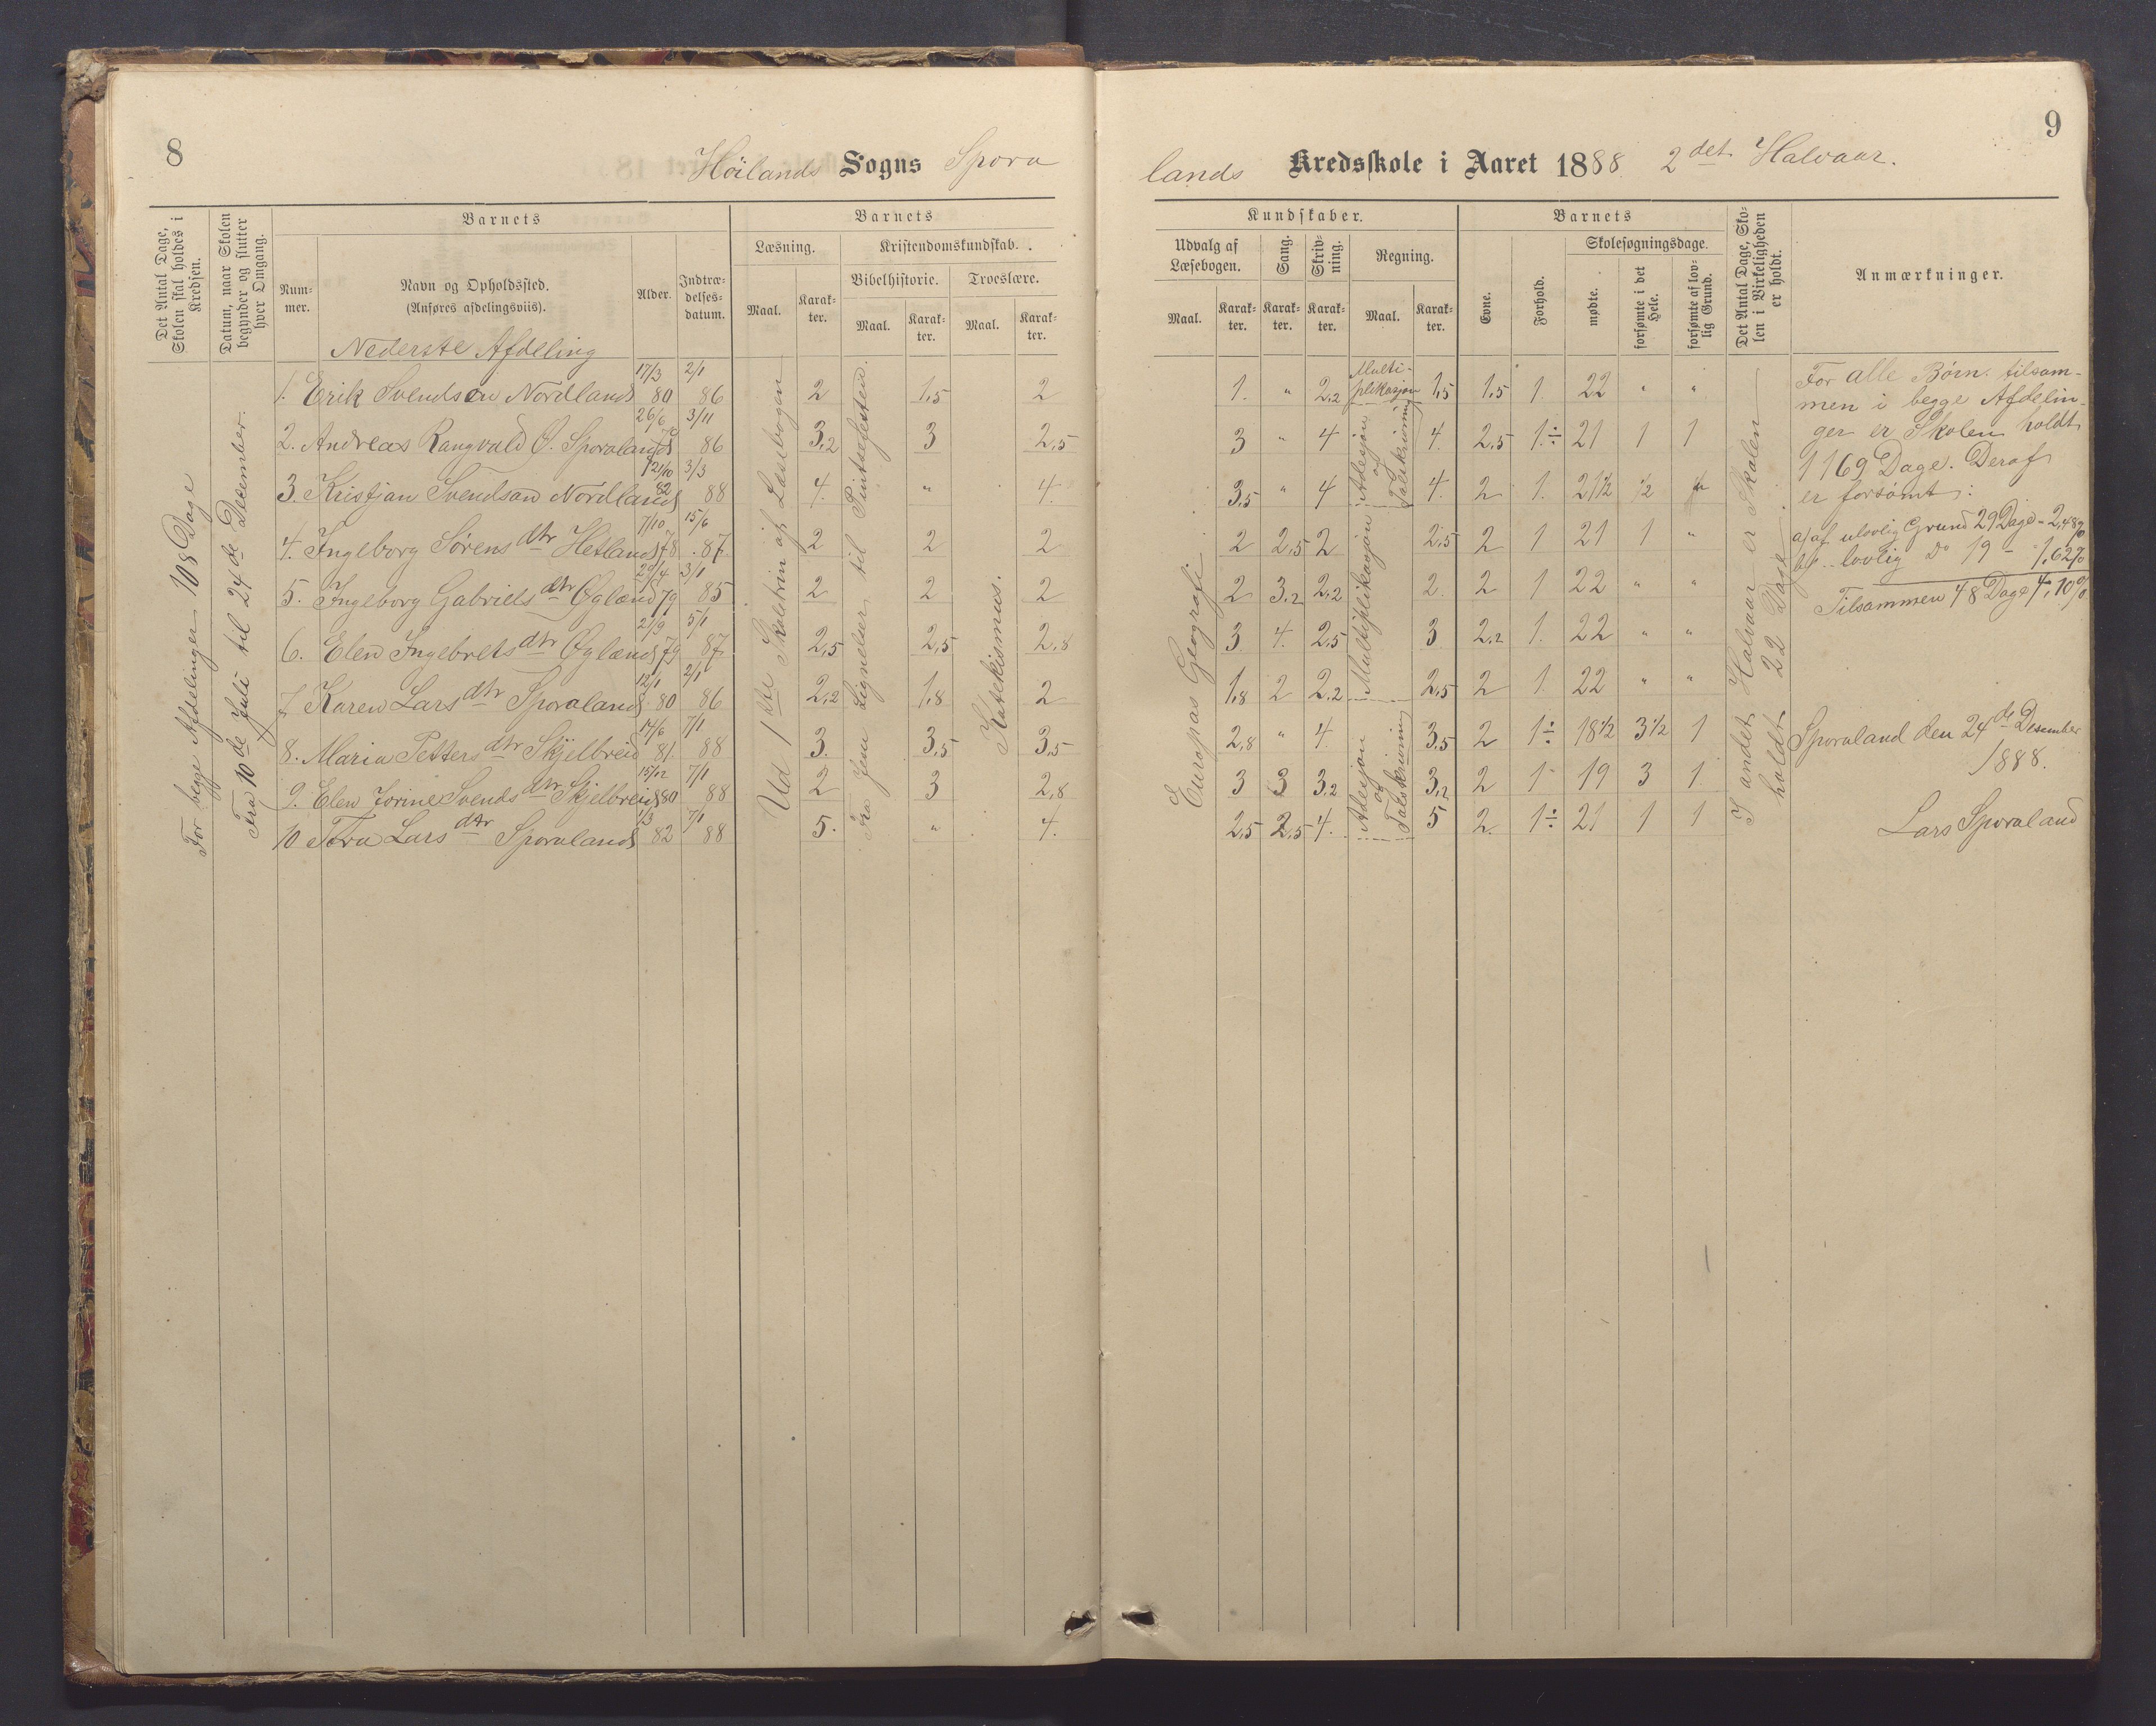 8
Höilands Sogns Spora
Det Antal Dage, Skolen skal holdes i Kredsen.
Datum, naar Skolen begynder og slutter hver Omgang.
Barnets
Num-mer.
Navn og Opholdssted. (Anføres afdelingsviis).
Alder.
Indtræ-delses-datum.
Barnets
Læsning.
Maal.
Karak-ter.
Kristendomskundskab.
Bibelhistorie.
Maal.
Karak-ter.
Troeslære.
Maal.
Karak-ter.
Nederste Afdeling
For begge Afdelinger 108 Dage
Fra 10de Juli til 24de December.
Ud 1ste Skoletrin af Læsebogen
Fra Jesu Lignelser til Pintsefesten.
Katekismus.
1. Erik Svendsen Nordland 17/3 80 2/1 86 2 1,5 2
2. Andreas Rangvald O. Sporaland 26/6 3/11 86 3,2 3 2,5
3. Kristjan Svendsen Nordland 21/10 82 3/3 88 4. " 4.
4. Ingeborg Sørens dtr Hetland 7/10 78 15/6 87 2 2 2
5. Ingeborg Gabriels dtr Øglænd 29/4 79 3/1 85 2 2 2
6. Elen Ingebrets dtr Øglænd 21/9 79 5/1 87 2,5 2,5 2,8
7 Karen Lars dtr Sporaland 12/1 80 2/1 86 2,2 1,8 2
8. Maria Petters dtr Skjelbreid 14/6 81. 7/1 88 3. 3,5 3,5
9. Elen Jorine Svends dtr Skjelbreid 15/12 80 7/1 88 2 3 2,8
10 Tora Lars dtr Sporaland 1/3 82 7/1 88 5. " 4.
9
lands Kredsskole i Aaret 1888. 2det Halvaar.
Kundskaber.
Udvalg af Læsebogen.
Maal.
Karak-ter.
Sang.
Karak-ter.
Skriv-ning.
Karak-ter.
Regning.
Maal.
Karak-ter.
Barnets
Evne.
Forhold.
Skolesøgningsdage.
mødte.
forsømte i det Hele.
forsømte af lov-lig Grund.
Det Antal Dage, Sko-len i Virkeligheden er holdt.
Anmærkninger.
Europas Geografi
Multi-plikasjon
Adisjon og Talskrivning
Multiplikasjon
Adisjon og Talskrivning
1. " 2,2 1,5 1,5 1. 22 " "
3 " 4 4. 2,5 1.÷ 21 1 1
3,5 " 4 4. 2 1. 21½ ½ "
2 2,5 2 2,5 2 1 21 1 "
2 3,2 2,2 2. 2 1 22 " "
3 4. 2,5 3 2,2 1. 22 " "
1,8 2 2,2 2,5 2 1 22 " "
2,8 " 4 3,5 2 1÷ 18½ 3½ 1
3 3 3,2 3,2 2 1 19 3 1
2,5 2,5 4. 5 2. 1÷ 21 1 1
I andet Halvaar er Skolen
holdt 22 Dage
For alle Børn tilsam-
men i begge Afdelin-
ger er Skolen holdt
1169 Dage. Deraf
er forsömt:
a) af ulovlig Grund 29 Dage = 2,48%
b) " lovlig Do 19 - 1,62%
Tilsammen 48 Dage 4,10%
Sporaland den 24de Desember
1888.
Lars Sporaland